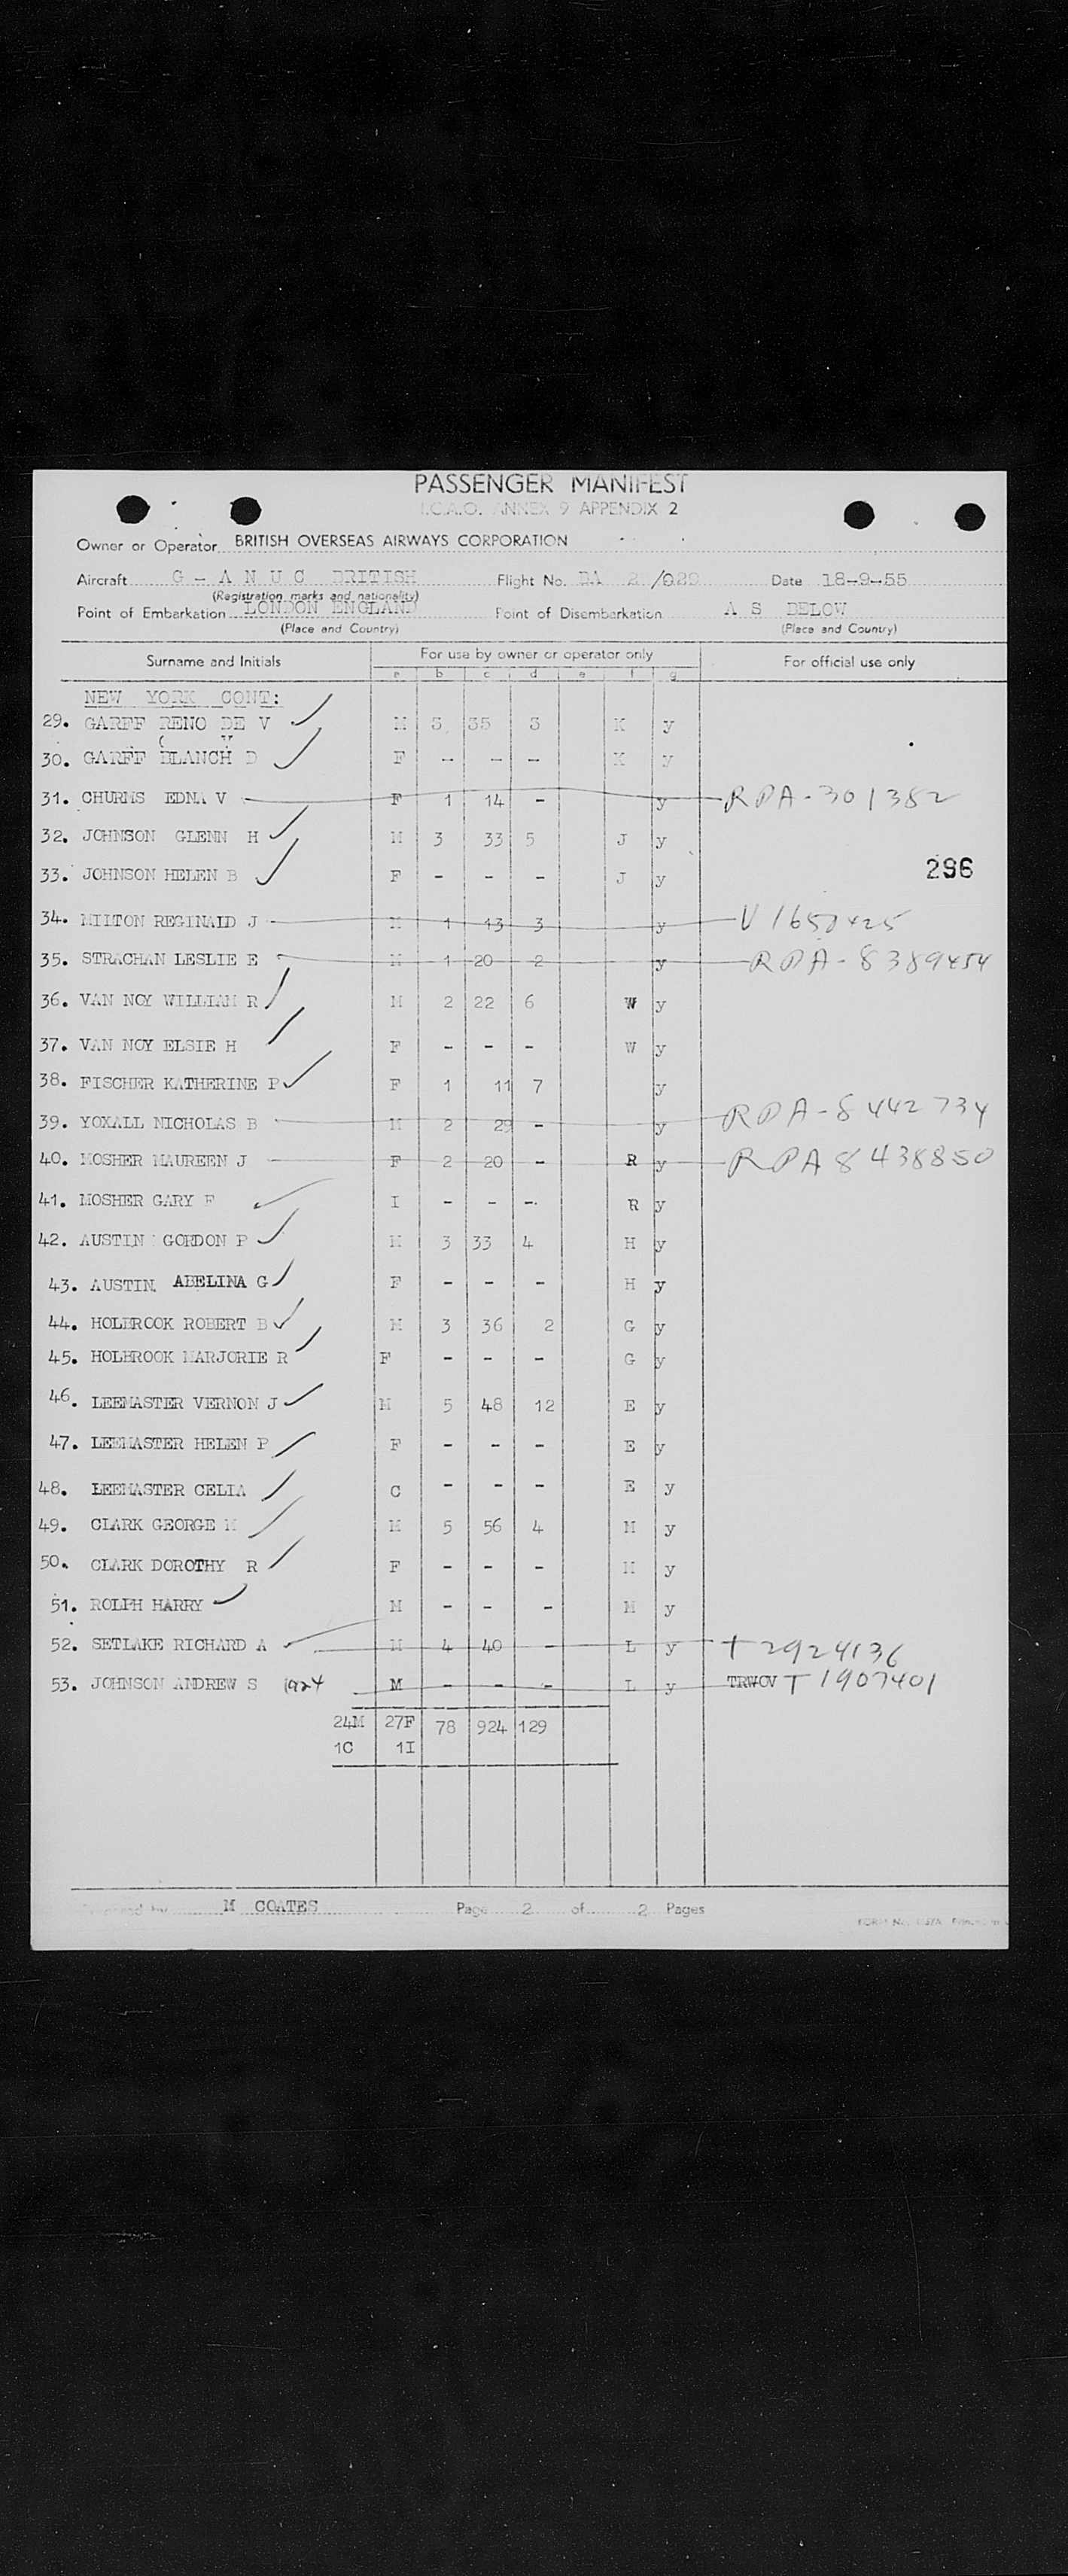 PASSENGER MANIFEST
I.C.A.O. ANNEX 9 APPENDIX 2
Owner or Operator BRITISH OVERSEAS AIRWAYS CORPORATION
Aircraft G - A N U C BRITISH Flight No. BA /029 Date 18-9-55
(Registration marks and nationality)
Point of Embarkation LONDON ENGLAND Point of Disembarkation A S BELOW
(Place and Country) (Place and Country)
Surname and Initials For use by owner or operator only For official use only
a b c d e f g
NEW YORK CONT:
29. GARFF RENO DE V M 5 35 5 K y
30. GARFF BLANCH D F - - - K y
31. CHURMS EDNA V F 1 14 - y RPA-301382
32. JOHNSON GLENN H M 3 33 5 J y
33. JOHNSON HELEN B F - - - J y
296
34. MILTON REGINALD J M 1 13 3 y V1650425
35. STRACHAN LESLIE E M 1 20 2 y RPA-8389454
36. VAN NOY WILLIAM R M 2 22 6 W y
37. VAN NOY ELSIE H F - - - W y
38. FISCHER KATHERINE P F 1 11 7 y
39. YOXALL NICHOLAS B M 2 29 - y RPA-8442734
40. MOSHER MAUREEN J F 2 20 - R y RPA 8438850
41. MOSHER GARY F I - - - R y
42. AUSTIN GORDON P M 3 33 4 H y
43. AUSTIN ABELINA G F - - - H y
44. HOLBROOK ROBERT B M 3 36 2 G y
45. HOLBROOK MARJORIE R F - - - G y
46. LEEMASTER VERNON J M 5 48 12 E y
47. LEEMASTER HELEN P F - - - E y
48. LEEMASTER CELIA C - - - E y
49. CLARK GEORGE M M 5 56 4 M y
50. CLARK DOROTHY R F - - - M y
51. ROLPH HARRY M - - - M y
52. SETLAKE RICHARD A M 4 40 - L y T 2924136
53. JOHNSON ANDREW S 1924 M - - - L y TRWOV T 1907401
24M 27F 78 924 129
1C 1I
Prepared by M COATES Page 2 of 2 Pages